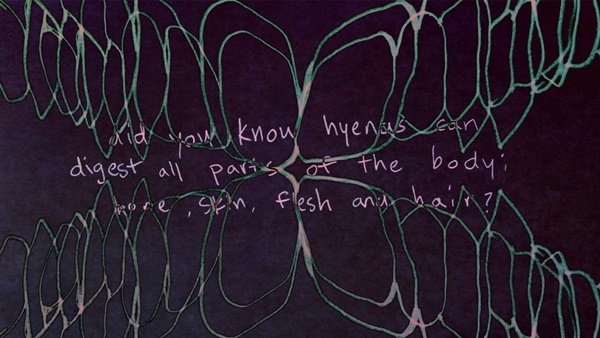 did you know hyenas can
digest all parts of the body;
bone, skin, flesh and hair?